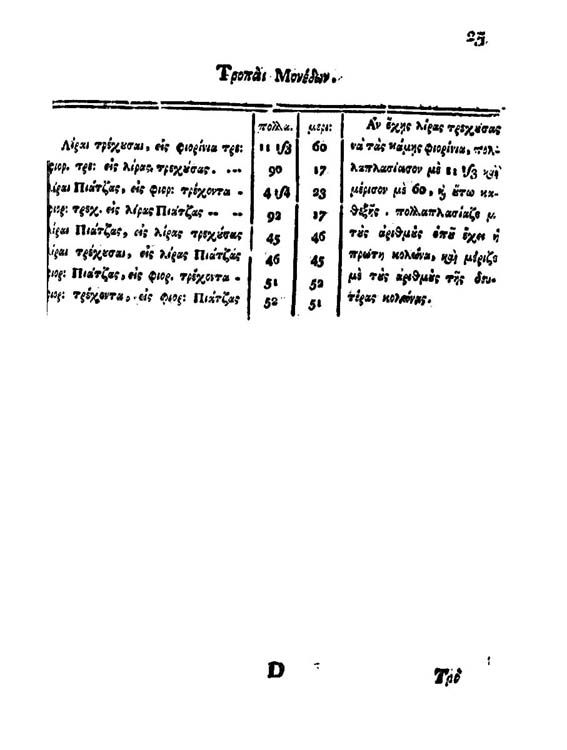 25
Τροπαὶ Μονέδων.
πολλα. μερι:
Λίραι τρέχυσαι, εἰς φιορίνια τρε: 11 1/3 60
φιορ. τρε: εἰς λίρας τρεχύσας. 90 17
λίραι Πιάτζας, εἰς φιορ: τρέχοντα - 4 1/4 23
φιορ: τρεχ. εἰς λίρας Πιάτζας -- -- 92 17
λίραι Πιάτζας, εἰς λίρας τρεχύσας 45 46
λίραι τρέχυσαι, εἰς λίρας Πιατζάς 46 45
φιορ: Πιάτζας, εἰς φιορ. τρέχοντα - 51 52
φιορ: τρέχοντα, εἰς φιορ: Πιάτζας 52 51
Αν ἔχῃς λίρας τρεχύσας
νὰ τὰς κάμῃς φιορίνια, πολ-
λαπλασίασον μὲ 11 1/3 καὶ
μέρισον μὲ 60, ἢ ὕτω κα-
θεξῆς. πολλαπλασίαζε μ
τὺς ἀριθμὺς ὁπῦ ἔχει ἡ
πρώτη κολώνα, καὶ μέριζε
μὲ τὺς ἀριθμὺς τῆς δευ-
τέρας κολώνας.
D Τρο